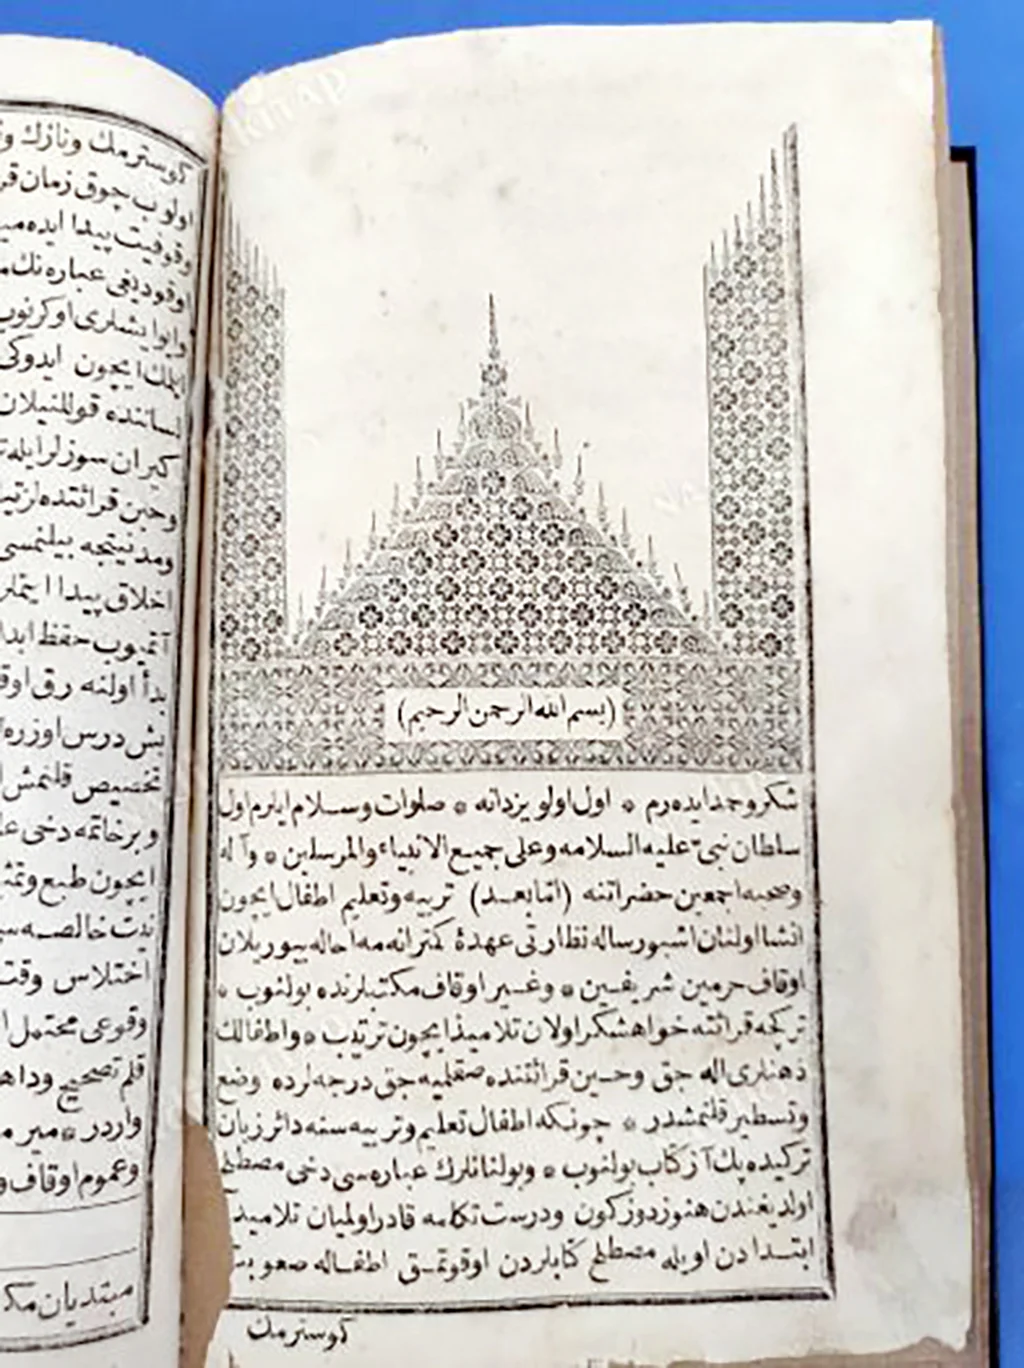 (بسم الله الرحمن الرحيم)
شكر وحمد ايده رم * اول اولو يزدانه * صلوات وسلام ايلرم اول
سلطان نبى عليه السلامه وعلى جميع الانبياء والمرسلين * وآله
وصحبه اجمعين حضراتنه (اما بعد) تربيه وتعليم اطفال ايچون
انشا اولنان اشبو رساله نظارتى عهدۀ كمترانه مه احاله بيوريلان
اوقاف حرمين شريفين * وغير اوقاف مكتبلرنده بولنوب *
تركجه قرائتنه خواهشكر اولان تلاميذ ايچون ترتيب * واطفالك
ذهنلرى اله جق وحين قرائتنده صقلميه جق درجه لرده وضع
وتسطير قلنمشدر * چونكه اطفال تعليم وتربيه سنه دائر زبان
تركيده پك آز كتاب بولنوب * وبولنانلرك عباره سى دخى مصطلح
اولديغندن هنوز دوزكون ودرست تكلمه قادر اولميان تلاميذ
ابتدا دن اويله مصطلح كتابلردن اوقوتمق اطفاله صعوبت
كوسترمك
كوسترمك ونازك
اولوب چوق زمان
وقوفيت پيدا ايده
اوقوديغى عباره نك
وايو ايشلرى اوكرنوب
ايلمك ايچون ايدوكى
لساننده قوللنيلان
كيران سوزلر ايله
وحين قرائتنده
ومدنيتجه بيلنمسى
اخلاق پيدا ايتملر
حفظ
بدأ اولنه رق
بش درس اوزره
تخصيص قلنمش
وبر خاتمه دخى
ايچون طبع
نيت خالصه
اختلاس وقت
وقوعى محتمل
قلم تصحيح
واردر *
وعموم اوقاف
مبتديان